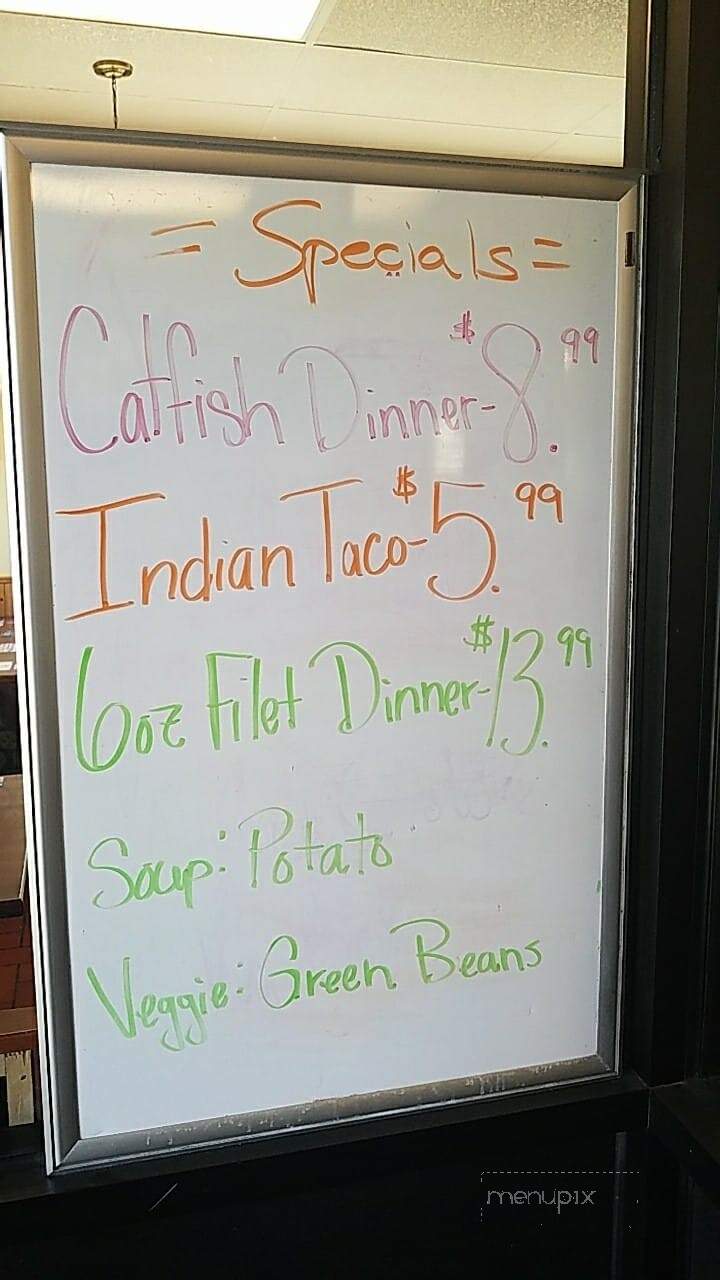 = Specials =
Catfish Dinner - $8.99
Indian Taco - $5.99
6oz Filet Dinner - $13.99
Soup: Potato
Veggie: Green Beans
menupix